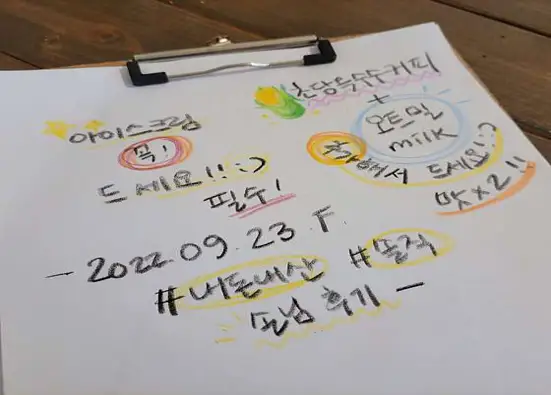 아이스크림
꼭!
드세요!! :)
필수!
초당옥수수커피
+
오트밀
milk
추가해서 드세요! :)
맛×2!!
- 2022.09.23.F.
#내돈내산 #솔직
손님 후기 -